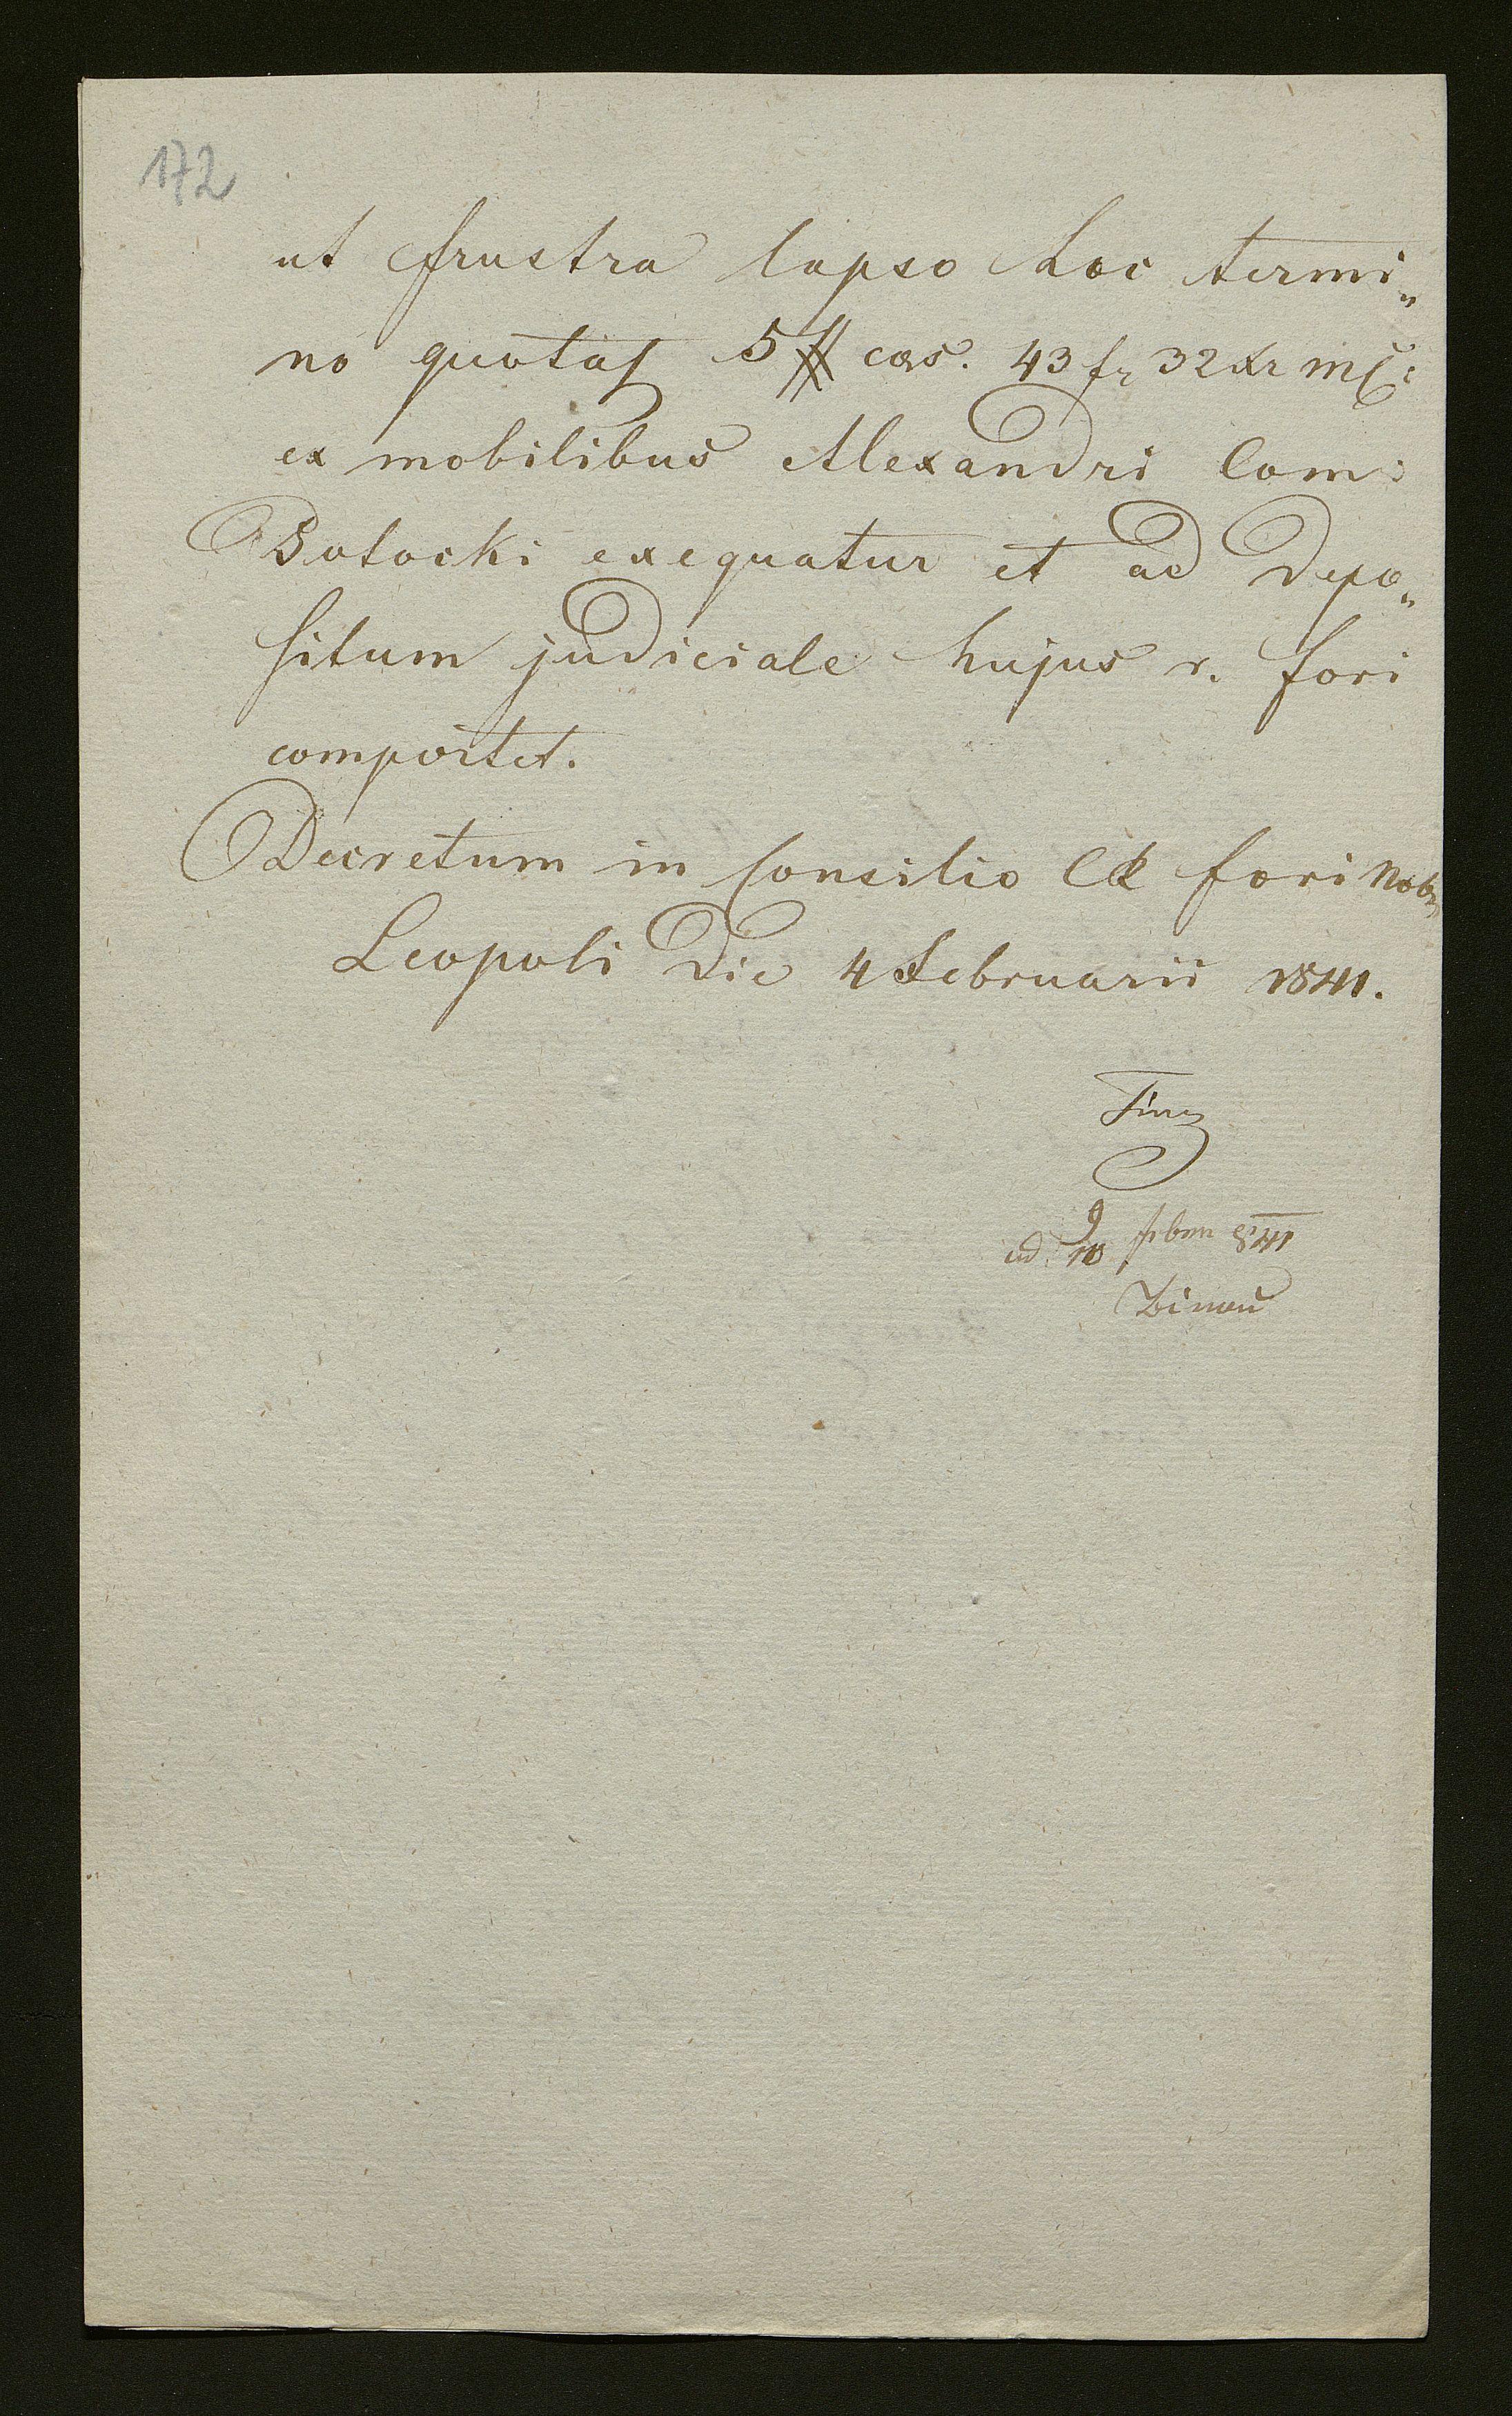 172
ut frustra lapso hoc termi„
no quotas 5 # cæs. 43 fr 32 xr mC:
ex mobilibus Alexandri Com:
Potocki exequatur et ad depo„
situm judiciale hujus r. fori
comportet.
Decretum in Consilio CR fori Nob:
Leopoli die 4 Februarii 1841.
ad 9/10 febru 841